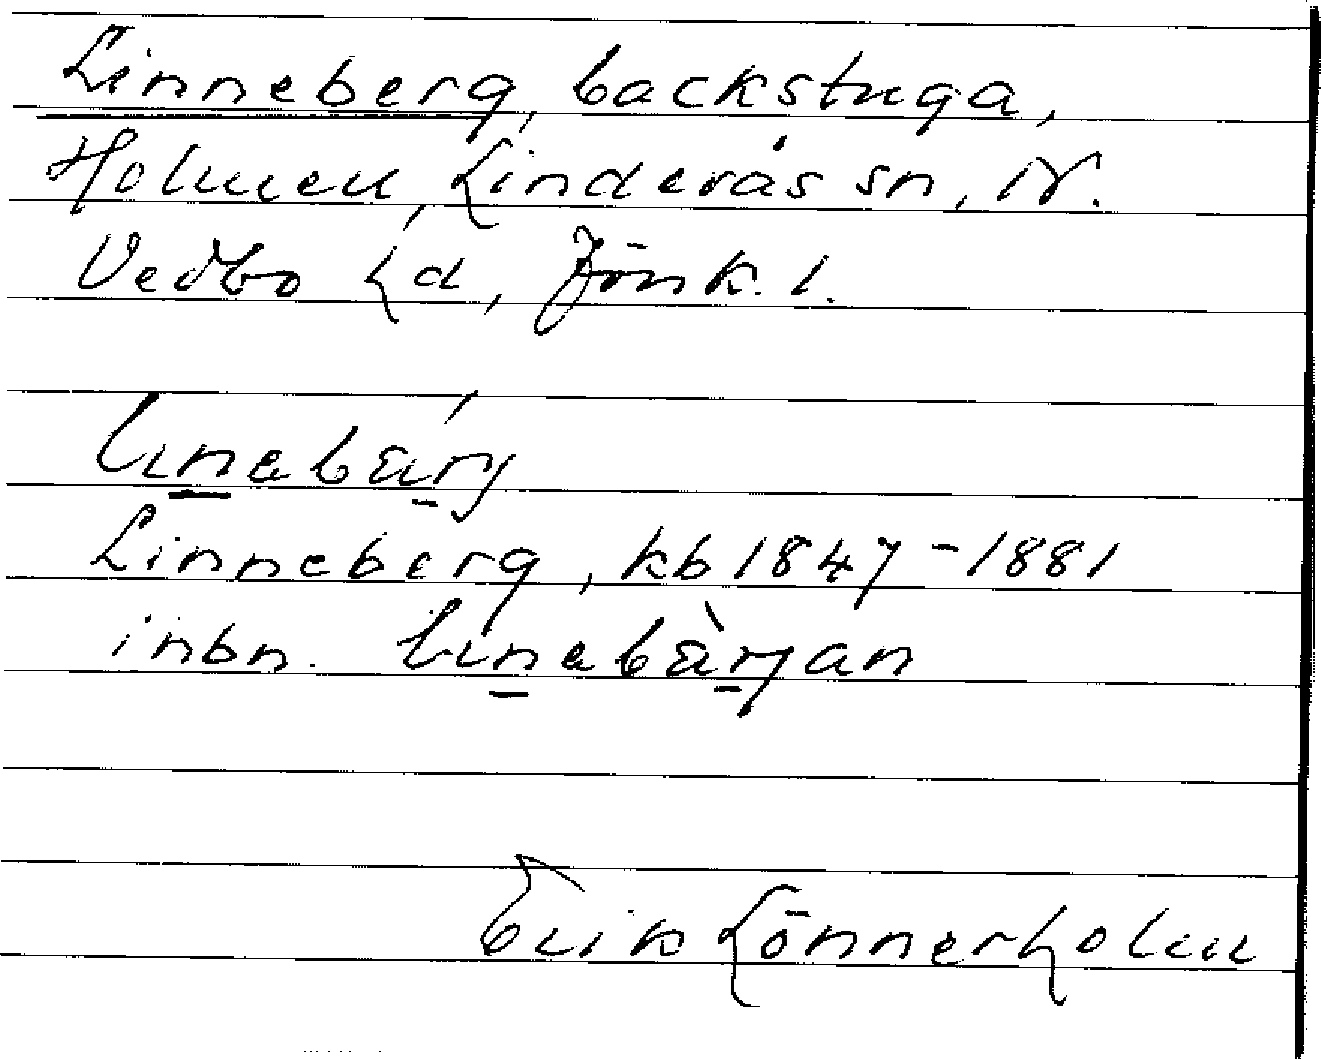 Linneberg, backstuga,
Holmen, Linderås sn, N.
Vedbo hd, Jönk. l.
linabärj
Linneberg, kb 1847-1881
inbn. linabärjan
Erik Lönnerholm